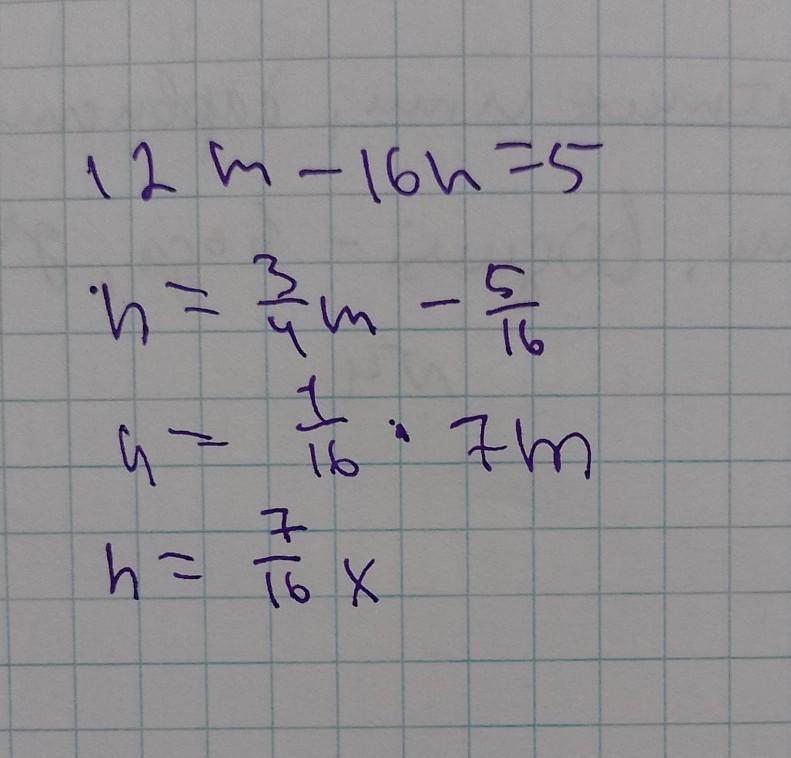 12m - 16n = 5
n = 3/4 m - 5/16
n = 1/16 · 7m
n = 7/16 x